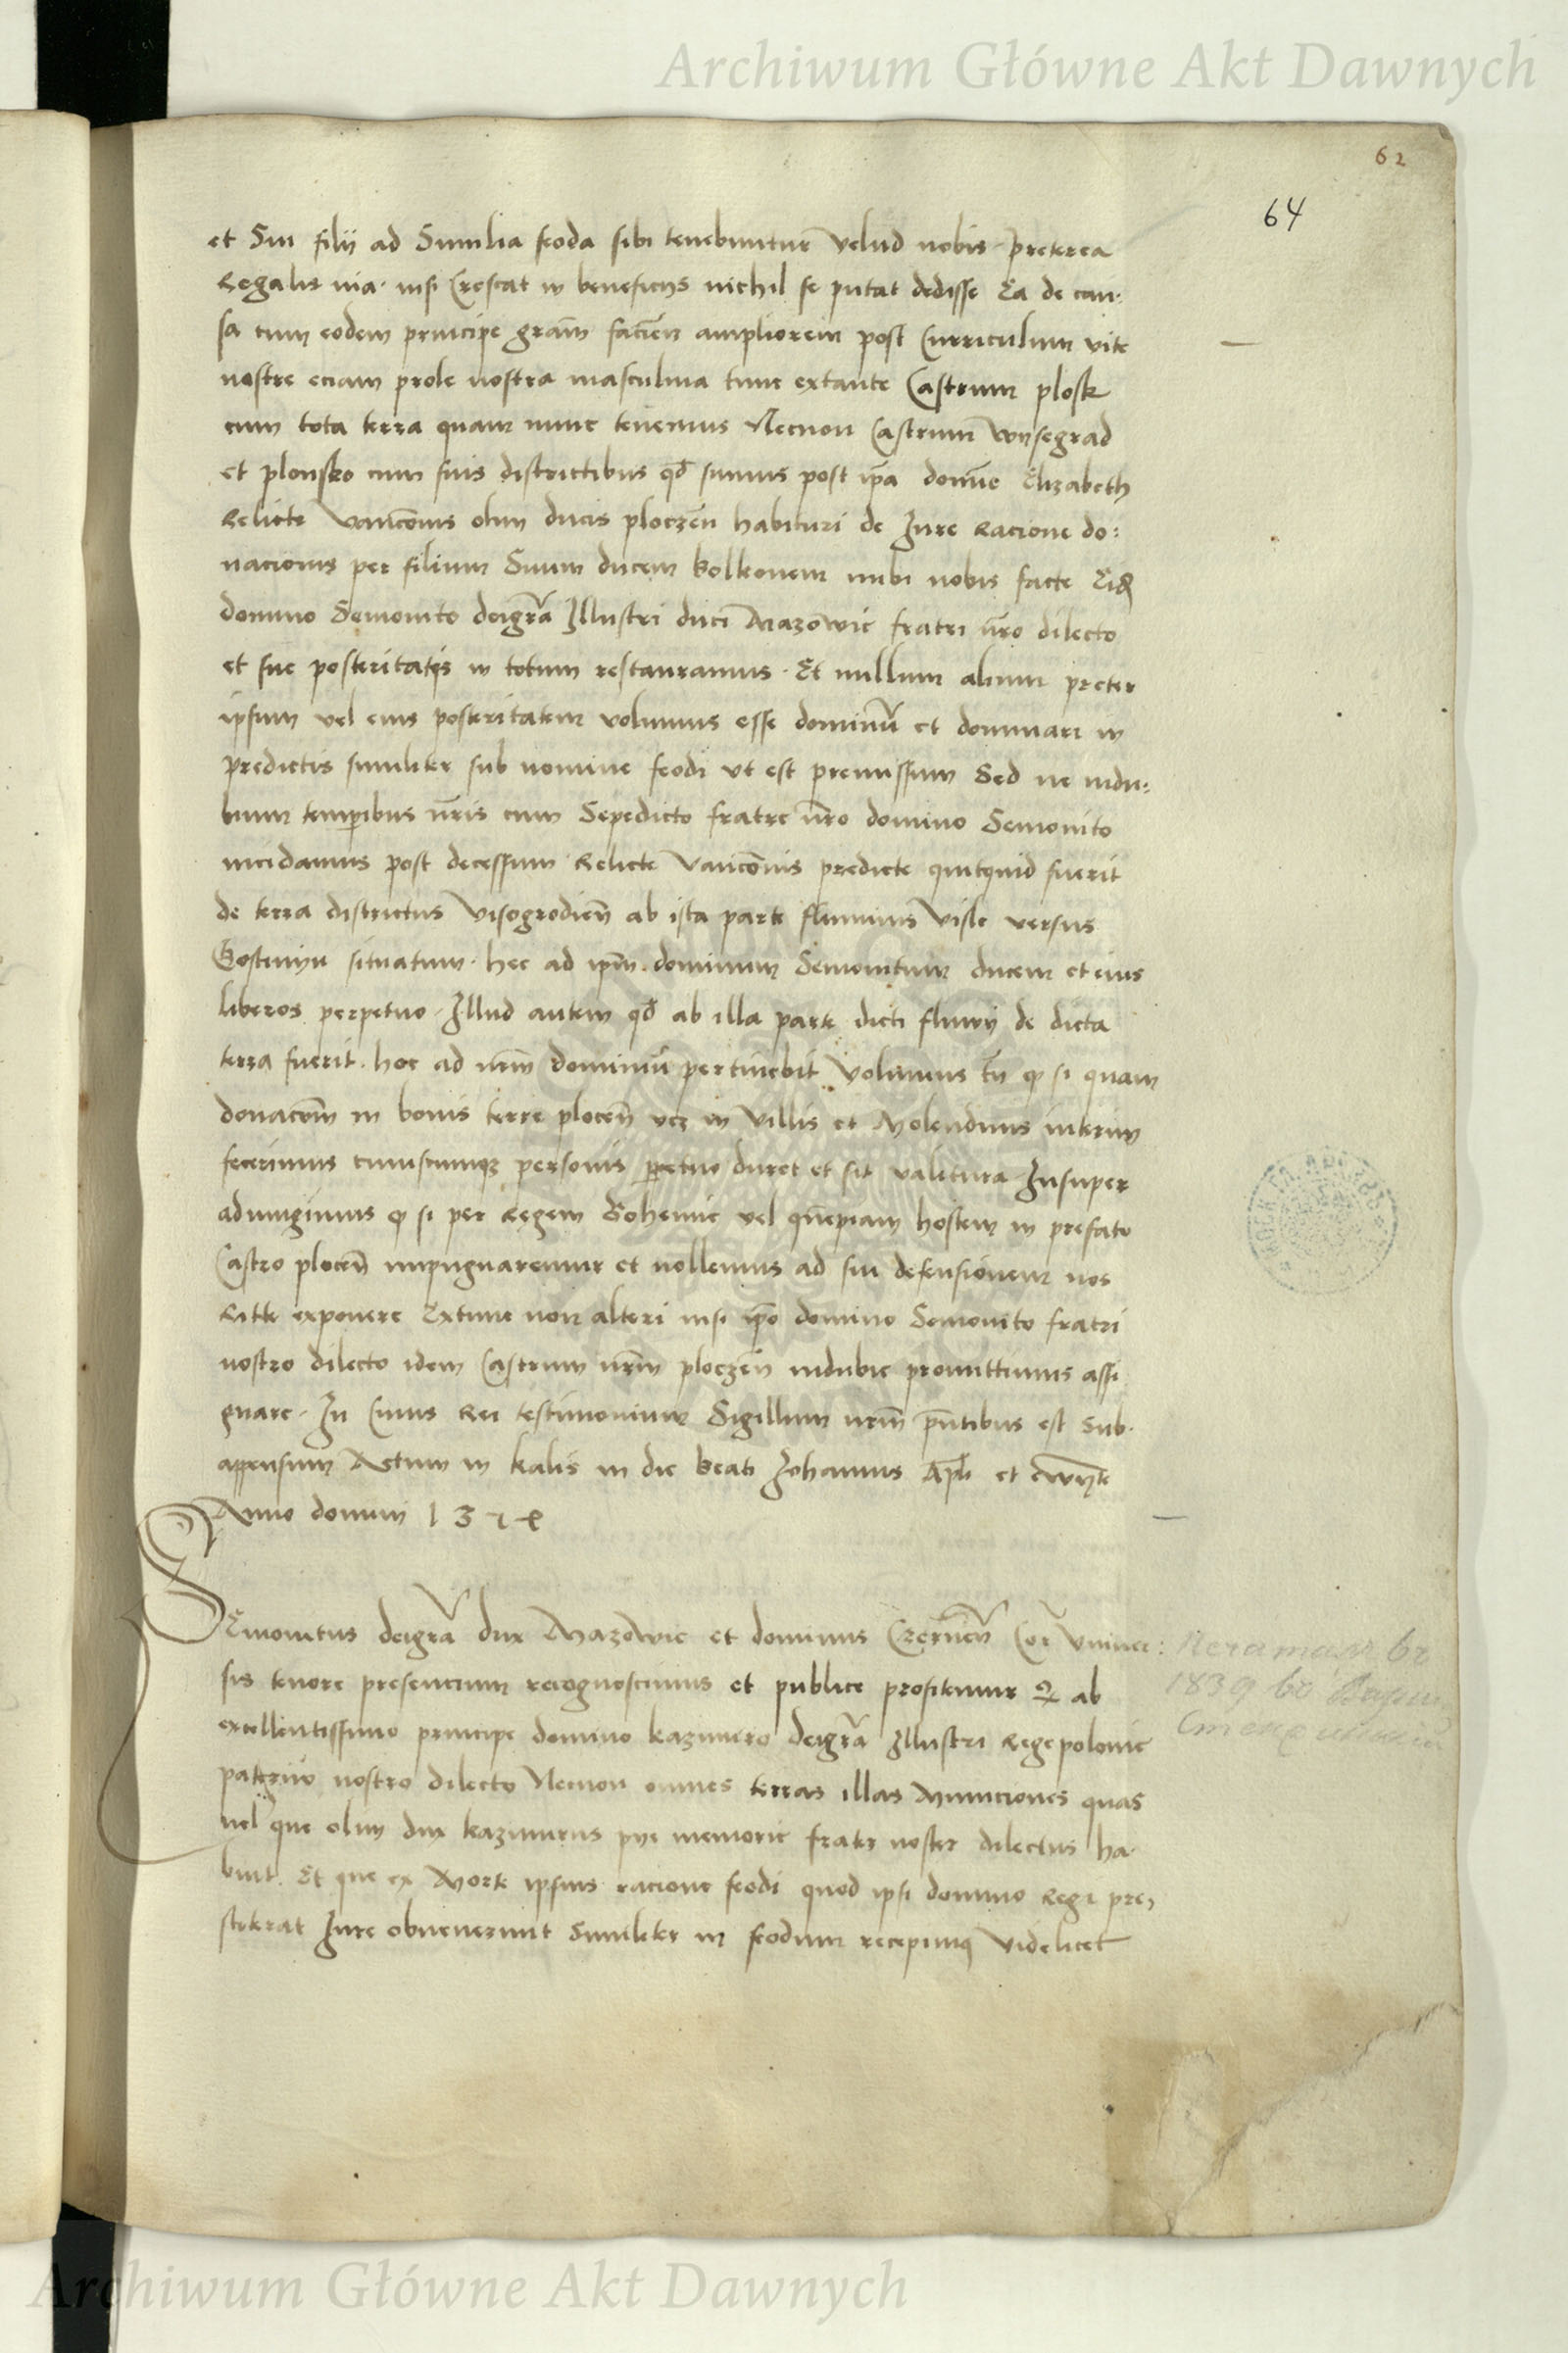 Archiwum Główne Akt Dawnych
62
64
et Sui filij ad Similia feoda sibi tenebuntur velud nobis. preterea
Regalis nisi Crescat in beneficijs nichil se putat dedisse Ea de cau:
sa cum eodem principe gram facien ampliorem post Curriculum vite
nostre eciam prole nostra masculina tunc extante Castrum plosk
cum tota terra quam nunc tenemus Necnon Castrum wysegrad
et plonsko cum suis districtibus qd sumus post ipa domine Elizabeth
Relicte vanconis olim ducis ploczen habituri de Jure Racione do:
nacionis per filium Suum ducem bolkonem nobis facte
domino Semouito deigra Jllustri duci Mazowie fratri nro dilecto
et sue posteritatis in totum restauramus. Et nullum alium preter
ipsum vel eius posteritatem volumus esse dominu et dominari in
predictis similiter sub nomine feodi vt est premissum Sed ne
temporibus nris cum Sepedicto fratre nro domino Semouito
incidamus post decessum Relicte vanconis predicte quitquid fuerit
de terra districtus visogrodien ab ista parte fluminis visle versus
Gostinyn situatum. hec ad ipm dominum Semouitum ducem et eius
liberos perpetuo. Jllud autem qd ab illa parte dicti fluvij de dicta
terra fuerit. hoc ad nrm dominiu pertinebit volumus tn q si quam
donacom in bonis terre plocen vcz in villis et Molendinis interim
fecerimus cuiuscumqz personis perpetuo duret et sit valitura Jnsuper
adiungimus q si per Regem Bohemie vel quempiam hostem in prefato
Castro plocen impugnaremur et nollemus ad sui defensionem nos
Ritte exponere Extunc non alteri nisi ipo domino Semouito fratri
nostro dilecto idem Castrum nrm ploczen indubie promittimus assi
gnare. Jn Cuius Rei testimonium Sigillum nrm pntibus est Sub.
appensum Actum in kalis in die beati Johannis Apli et ewnte
Anno domini
SEmouitus deigra dux Mazowie et dominus Czernen Cor vniuer:
sis tenore presencium recognoscimus et publice profitemur q ab
excellentissimo principe domino kazimiro deigra Jllustri Rege polonie
patruo nostro dilecto Necnon omnes terras illas Municiones quas
uel que olim dux kazimirus pye memorie frater noster dilectus ha.
buit. Et que ex Morte ipsius racione feodi quod ipsi domino Regi pre,
stiterat Jure obuenerunt Similiter in feodum recepimus videlicet
1839
Archiwum Główne Akt Dawnych